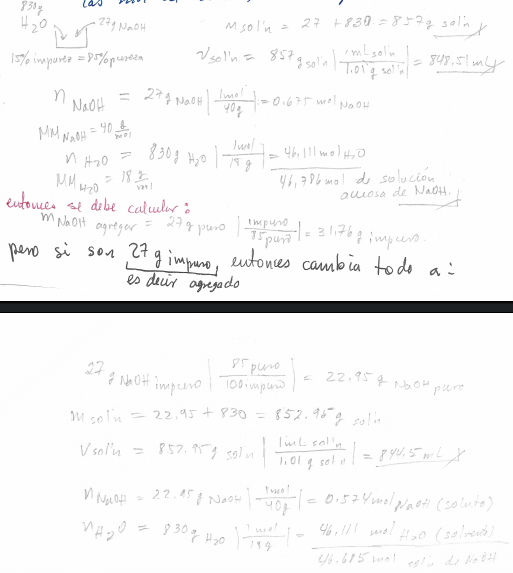 830g
H₂O 27g NaOH
15% impurez = 85% pureza
m soln = 27 + 830 = 857g soln
V soln = 857g soln | 1mL soln / 1.01g soln | = 848.51 mL
n NaOH = 27g NaOH | 1mol / 40g | = 0.675 mol NaOH
MM NaOH = 40 g/mol
n H₂O = 830g H₂O | 1mol / 18g | = 46,111 mol H₂O
MM H₂O = 18 g/mol
46,786 mol de solución
acuosa de NaOH.
entonces se debe calcular:
m NaOH agregar = 27g puro | impuro / 85 puro | = 31.76g impuro.
pero si son 27 g impuro, entonces cambia todo a:
es decir agregado
27 g NaOH impuro | 85 puro / 100 impuro | = 22.95 g NaOH puro
m soln = 22.95 + 830 = 852.95g soln
V soln = 852.95g soln | 1mL soln / 1.01 g soln | = 844.5 mL
n NaOH = 22.95g NaOH | 1mol / 40g | = 0.574 mol NaOH (soluto)
n H₂O = 830g H₂O | 1 mol / 18g | = 46,111 mol H₂O (solvente)
46.685 mol soln de NaOH